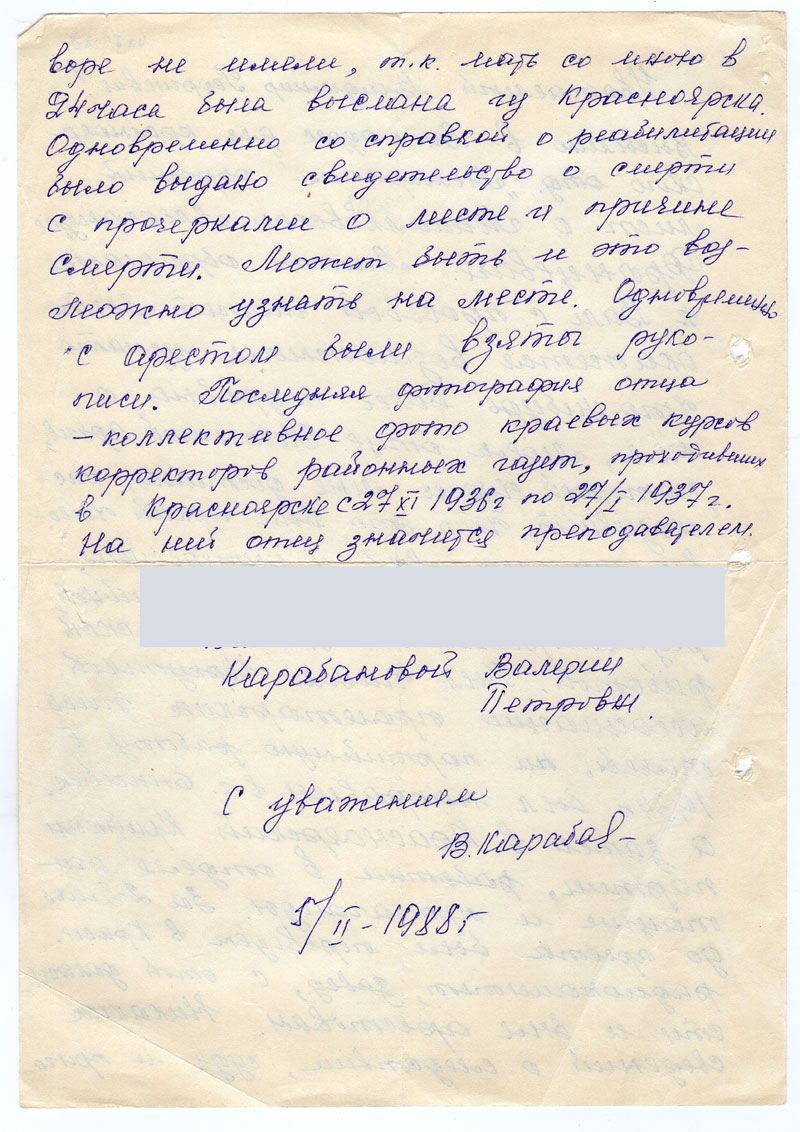 воре не имели, т.к. мать со мною в
24 часа была выслана из Красноярска.
Одновременно со справкой о реабилитации
было выдано свидетельство о смерти
с прочерками о месте и причине
смерти. Может быть и это воз-
можно узнать на месте. Одновременно
с арестом были взяты руко-
писи. Последняя фотография отца
– коллективное фото краевых курсов
корректоров районных газет, проходивших
в Красноярске с 27 XI 1936г по 27/I 1937г.
На ней отец значится преподавателем.
Карабановой Валерии
Петровн.
С уважением
В. Караба
5/II - 1988г